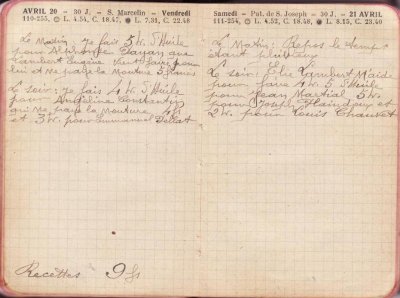 AVRIL 20 — 30 J. — S. Marcellin — Vendredi
110-255, ● L. 4,54, C. 18.47, L. 7,31, C. 22.48
Le Matin, je fais 5 W. d'Huile
pour Alphonse Fayan qui
Lambert Eugène vient faire pour
lui et me paye la Mouture 5 francs
Le soir: je fais 4 W. d'Huile
pour Angéline Constantin
qui me paye la mouture 4 fs
et 3 W. pour Emmanuel
Recettes 9 fs
Samedi — Pat. de S. Joseph — 30 J. — 21 AVRIL
111-254, L. 4,52, C. 18,48, ● L. 8.15, C. 23.40
Le Matin: Repos le temps
étant pluvieux
Le soir: Elie Lambert M'aide
pour faire 4 W. 5 d'Huile
pour Jean Martial 5 W.
pour Joseph et
2 W. pour Louis Chauvet